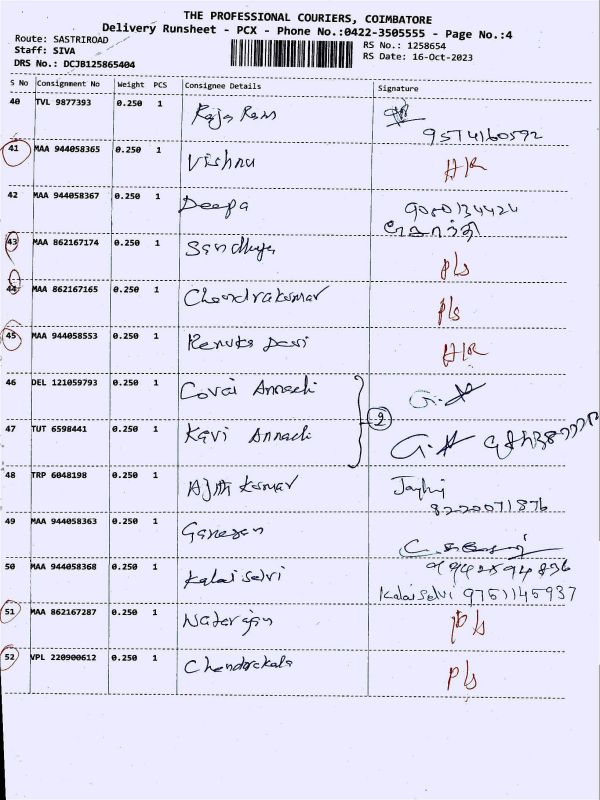 THE PROFESSIONAL COURIERS, COIMBATORE
Delivery Runsheet - PCX - Phone No.:0422-3505555 - Page No.:4
Route: SASTRIROAD
Staff: SIVA
DRS No.: DCJB125865404
RS No.: 1258654
RS Date: 16-Oct-2023
S No Consignment No Weight PCS Consignee Details Signature
40 TVL 9877393 0.250 1 Raja Ram
9574160592
41 MAA 944058365 0.250 1 Vishnu H/R
42 MAA 944058367 0.250 1 Deepa
43 MAA 862167174 0.250 1 Sandhya P/s
44 MAA 862167165 0.250 1 Chandrakumar P/s
45 MAA 944058553 0.250 1 Renuka Devi H/R
46 DEL 121059793 0.250 1 Covai Annachi
2
47 TUT 6598441 0.250 1 Kavi Annachi
48 TRP 6048198 0.250 1 Ajith Kumar
8220071876
49 MAA 944058363 0.250 1 Ganesan
50 MAA 944058368 0.250 1 Kalaiselvi
Kalaiselvi 9751145937
51 MAA 862167287 0.250 1 Natarajan P/s
52 VPL 220900612 0.250 1 Chandrakala P/s